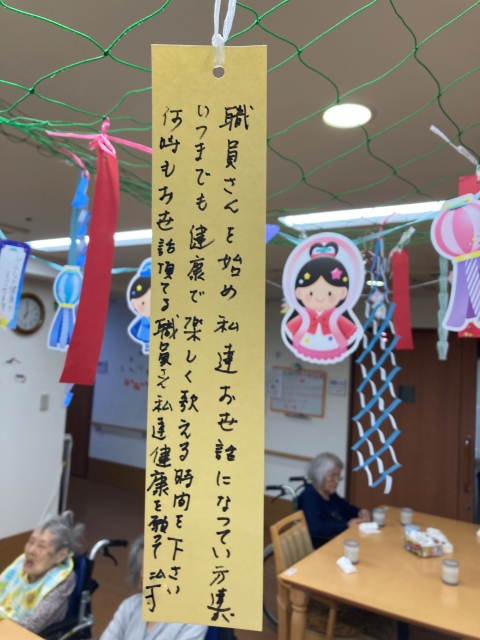 職員さんを始め私達お世話になってい方集
いつまでも健康で楽しく歌える時間を下さい
何時もお世話頂てる職員さん私達健康を願そ